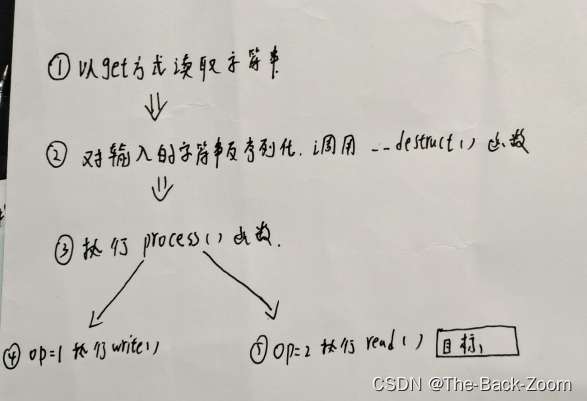 ① 以get方式读取字符串
⇓
② 对输入的字符串反序列化.调用 __destruct()函数
⇓
③ 执行 process()函数.
④ op=1 执行write()
⑤ op=2 执行 read() 目标,
CSDN @The-Back-Zoom